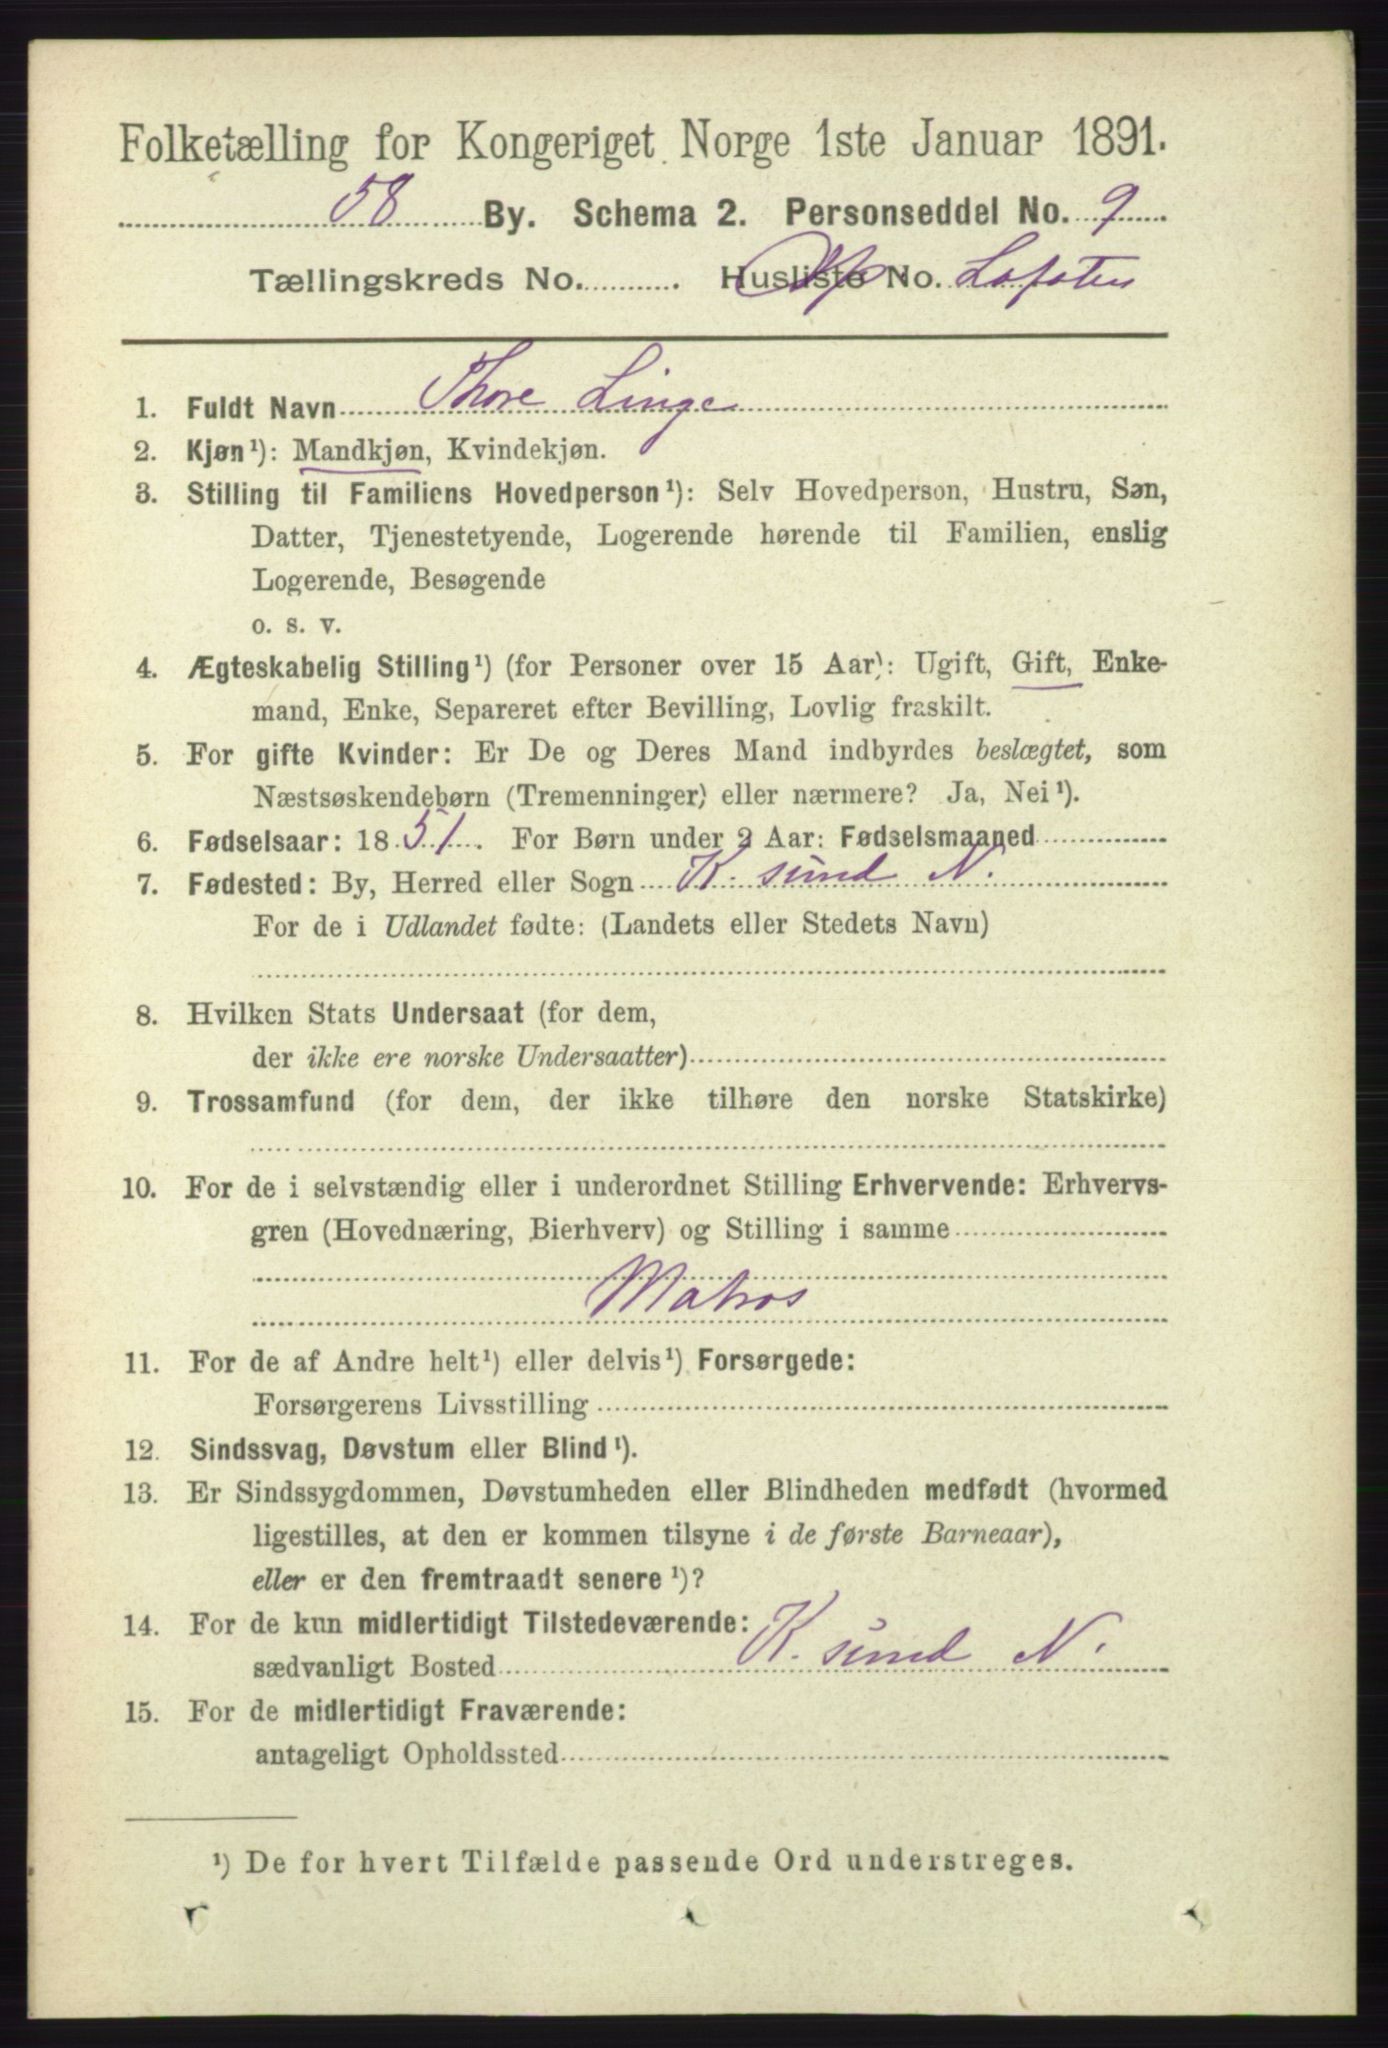 Folketælling for Kongeriget Norge 1ste Januar 1891.
58 By. Schema 2. Personseddel No. 9
Tællingskreds No. Husliste No. Lofoten
1. Fuldt Navn Thore Linge
2. Kjøn¹): Mandkjøn, Kvindekjøn.
3. Stilling til Familiens Hovedperson¹): Selv Hovedperson, Hustru, Søn,
Datter, Tjenestetyende, Logerende hørende til Familien, enslig
Logerende, Besøgende
o. s. v.
4. Ægteskabelig Stilling¹) (for Personer over 15 Aar): Ugift, Gift, Enke-
mand, Enke, Separeret efter Bevilling, Lovlig fraskilt.
5. For gifte Kvinder: Er De og Deres Mand indbyrdes beslægtet, som
Næstsøskendebørn (Tremenninger) eller nærmere? Ja, Nei¹).
6. Fødselsaar: 1851. For Børn under 2 Aar: Fødselsmaaned
7. Fødested: By, Herred eller Sogn K. sund N.
For de i Udlandet fødte: (Landets eller Stedets Navn)
8. Hvilken Stats Undersaat (for dem,
der ikke ere norske Undersaatter)
9. Trossamfund (for dem, der ikke tilhøre den norske Statskirke)
10. For de i selvstændig eller i underordnet Stilling Erhvervende: Erhvervs-
gren (Hovednæring, Bierhverv) og Stilling i samme
Matros
11. For de af Andre helt¹) eller delvis¹) Forsørgede:
Forsørgerens Livsstilling
12. Sindssvag, Døvstum eller Blind¹).
13. Er Sindssygdommen, Døvstumheden eller Blindheden medfødt (hvormed
ligestilles, at den er kommen tilsyne i de første Barneaar),
eller er den fremtraadt senere¹)?
14. For de kun midlertidigt Tilstedeværende:
sædvanligt Bosted K. sund N.
15. For de midlertidigt Fraværende:
antageligt Opholdssted
¹) De for hvert Tilfælde passende Ord understreges.